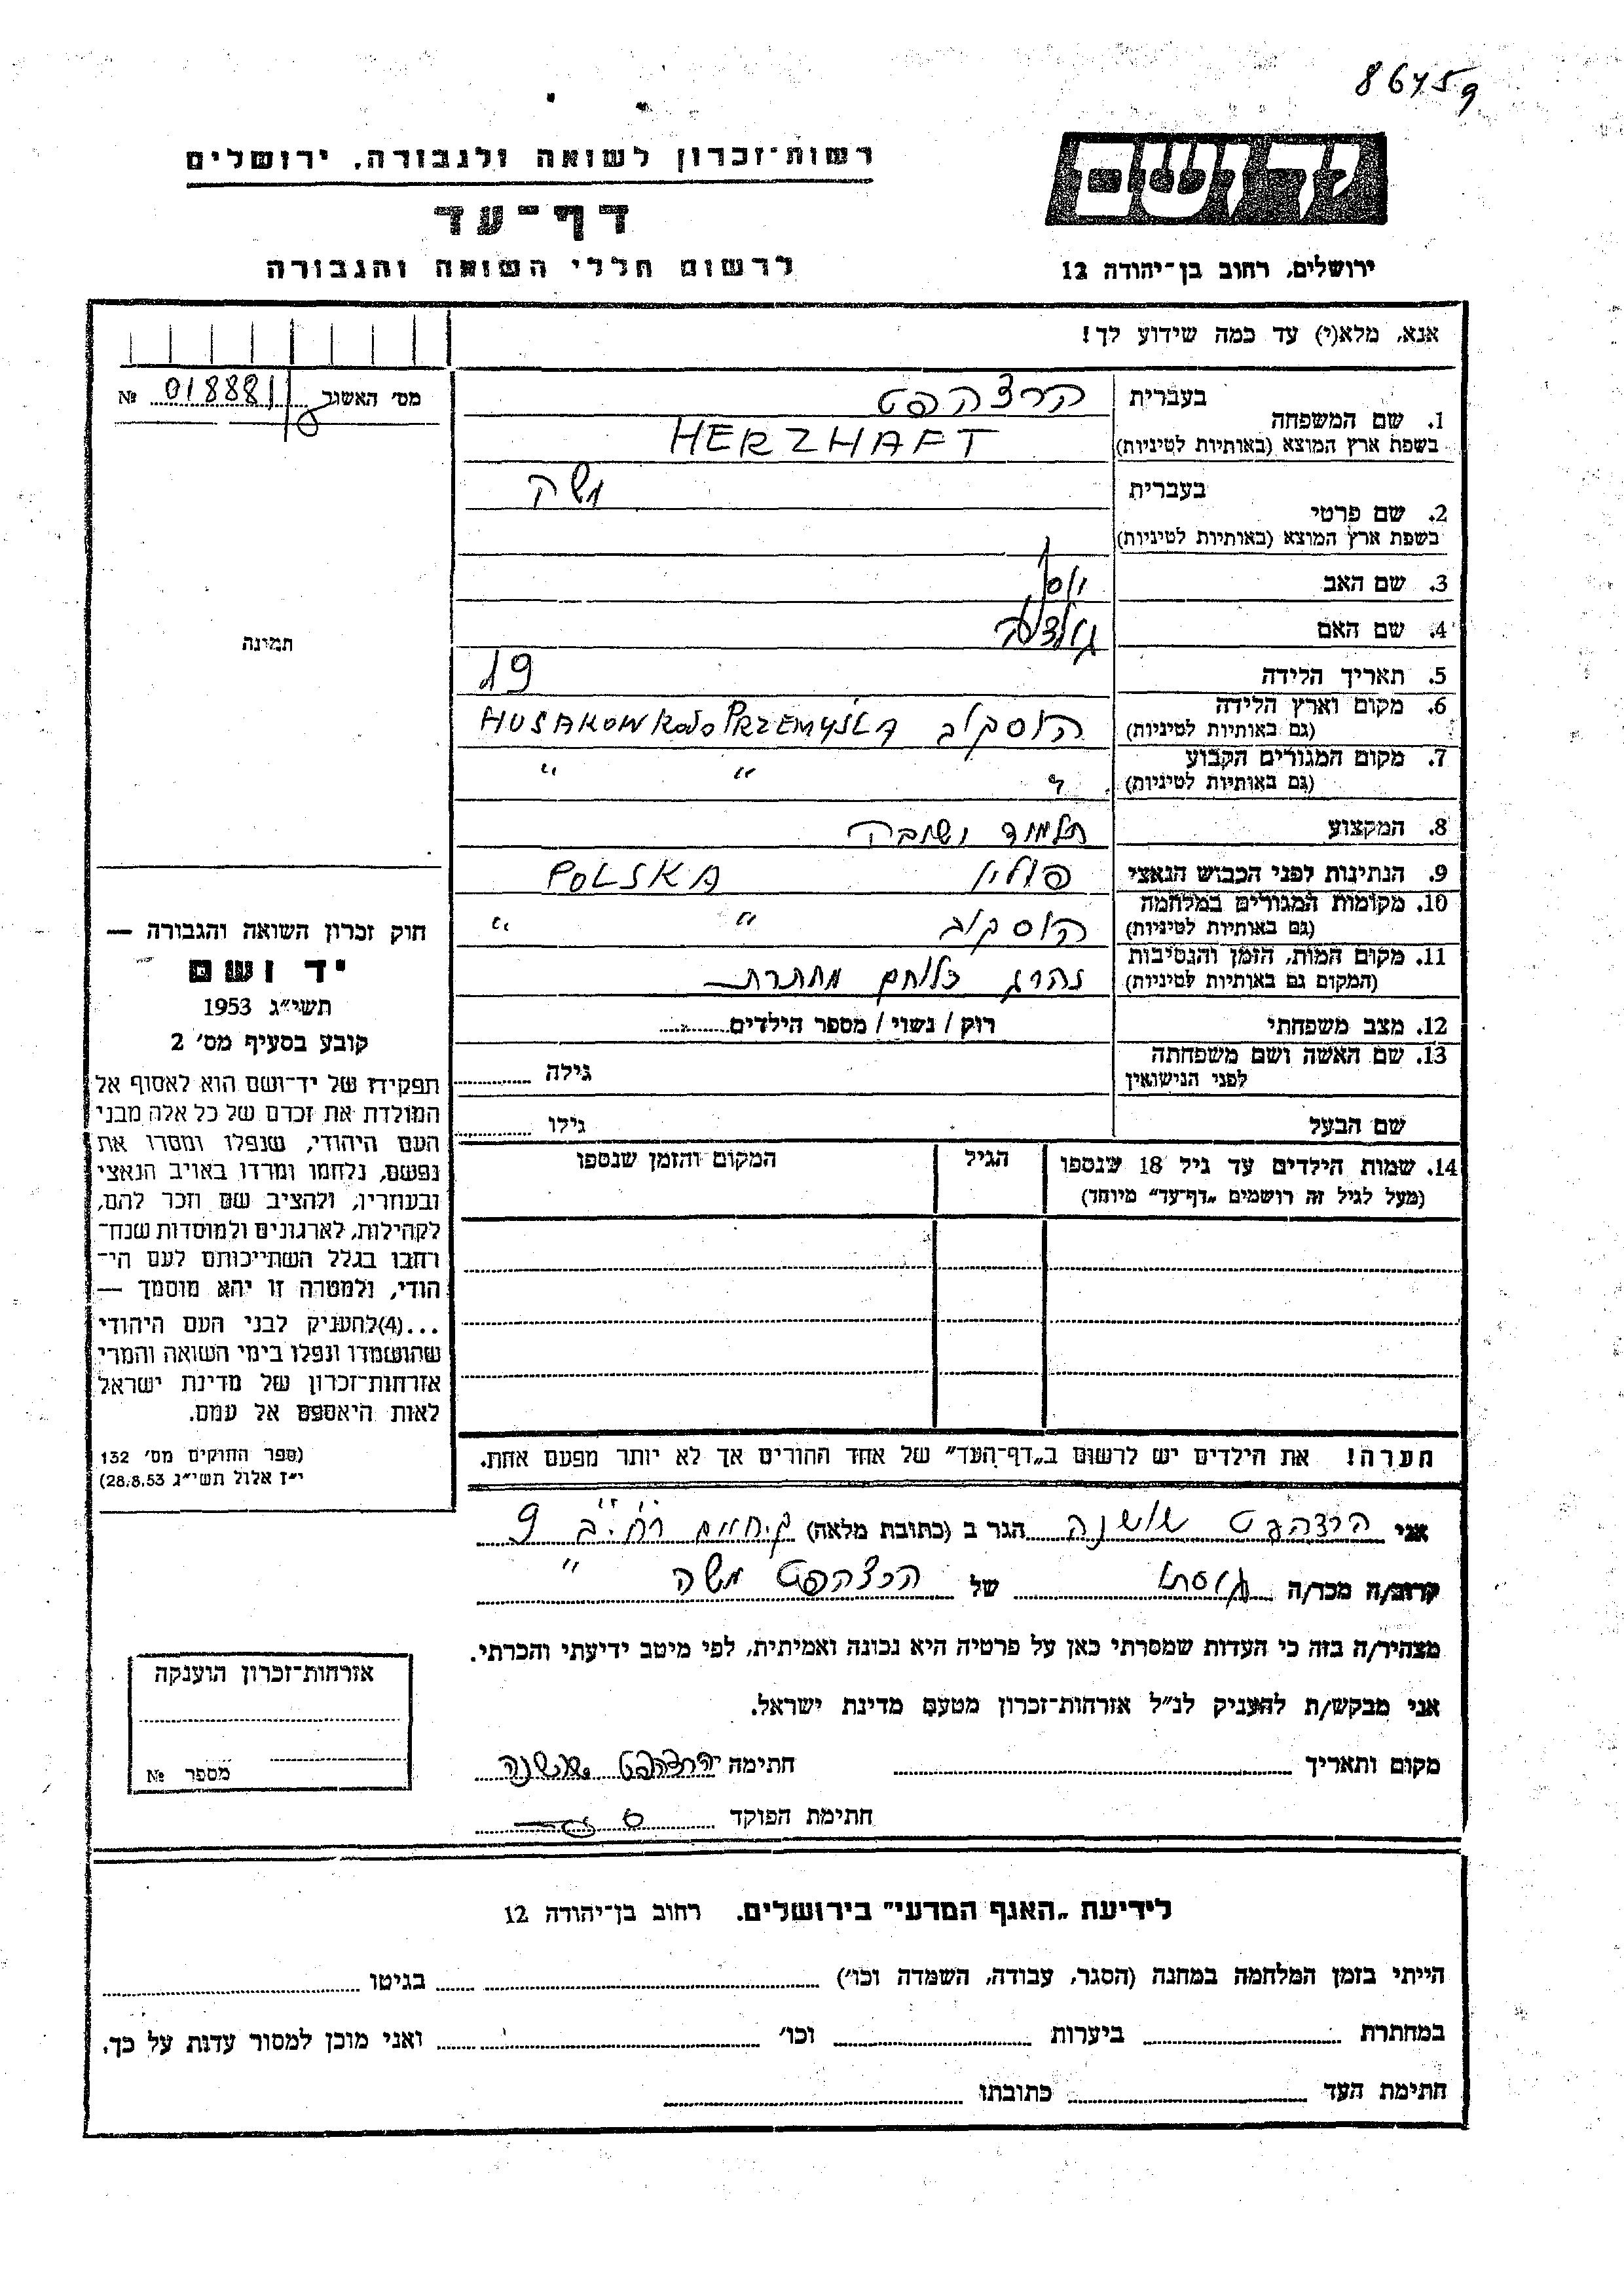 8645g
רשות־זכרון לשואה ולגבורה, ירושלים
יד ושם
דף־עד
לרשום חללי השואה והגבורה
ירושלים, רחוב בן־יהודה 12
אנא, מלא(י) עד כמה שידוע לך!
מס' האשנב 018881 №
1. שם המשפחה
בעברית הרצהפט
בשפת ארץ המוצא (באותיות לטיניות) HERZHAFT
2. שם פרטי
בעברית משה
בשפת ארץ המוצא (באותיות לטיניות)
3. שם האב יוסף
4. שם האם
תמונה
5. תאריך הלידה 19
6. מקום וארץ הלידה
(גם באותיות לטיניות) הוסקוב HUSAKOW KOŁO PRZEMYŚLA
7. מקום המגורים הקבוע
(גם באותיות לטיניות) " " "
8. המקצוע תלמוד ישיבה
9. הנתינות לפני הכבוש הנאצי פולין POLSKA
10. מקומות המגורים במלחמה
(גם באותיות לטיניות) הוסקוב " "
11. מקום המות, הזמן והנסיבות
(המקום גם באותיות לטיניות) נהרג כלוחם מחתרת
12. מצב משפחתי רוק / נשוי / מספר הילדים
13. שם האשה ושם משפחתה
לפני הנישואין גילה
שם הבעל גילו
14. שמות הילדים עד גיל 18 שנספו
(מעל לגיל זה רושמים „דף־עד" מיוחד)
הגיל
המקום והזמן שנספו
חוק זכרון השואה והגבורה —
יד ושם
תשי"ג 1953
קובע בסעיף מס' 2
תפקידו של יד־ושם הוא לאסוף אל
המולדת את זכרם של כל אלה מבני
העם היהודי, שנפלו ומסרו את
נפשם, נלחמו ומרדו באויב הנאצי
ובעוזריו, ולהציב שם וזכר להם,
לקהילות, לארגונים ולמוסדות שנח־
רבו בגלל השתייכותם לעם הי־
הודי, ולמטרה זו יהא מוסמך —
...(4)להעניק לבני העם היהודי
שהושמדו ונפלו בימי השואה והמרי
אזרחות־זכרון של מדינת ישראל
לאות היאספם אל עמם.
(ספר החוקים מס' 132
י"ז אלול תשי"ג 28.8.53)
הערה! את הילדים יש לרשום ב„דף־העד" של אחד ההורים אך לא יותר מפעם אחת.
אני הרצהפט שושנה הגר ב (כתובת מלאה) 9
קרוב/ה מכר/ה גיסתו של הרצהפט משה
מצהיר/ה בזה כי העדות שמסרתי כאן על פרטיה היא נכונה ואמיתית, לפי מיטב ידיעתי והכרתי.
אני מבקש/ת להעניק לנ"ל אזרחות־זכרון מטעם מדינת ישראל.
מקום ותאריך חתימה הרצהפט שושנה
חתימת הפוקד
אזרחות־זכרון הוענקה
מספר №
לידיעת „האגף המדעי" בירושלים. רחוב בן־יהודה 12
הייתי בזמן המלחמה במחנה (הסגר, עבודה, השמדה וכו') בגיטו
במחתרת ביערות וכו' ואני מוכן למסור עדות על כך.
חתימת העד כתובתו